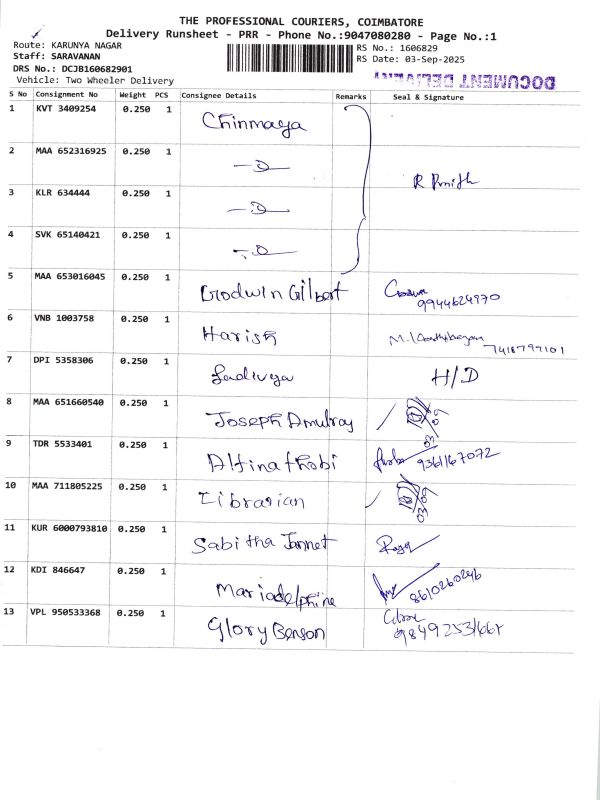 THE PROFESSIONAL COURIERS, COIMBATORE
Delivery Runsheet - PRR - Phone No.:9047080280 - Page No.:1
Route: KARUNYA NAGAR
Staff: SARAVANAN
DRS No.: DCJB160682901
Vehicle: Two Wheeler Delivery
RS No.: 1606829
RS Date: 03-Sep-2025
S No Consignment No Weight PCS Consignee Details Remarks Seal & Signature
1 KVT 3409254 0.250 1 Chinmaya
2 MAA 652316925 0.250 1
3 KLR 634444 0.250 1
4 SVK 65140421 0.250 1
5 MAA 653016045 0.250 1 Godwin Gilbert 9944624970
6 VNB 1003758 0.250 1 Harish
7 DPI 5358306 0.250 1 H/D
8 MAA 651660540 0.250 1 Joseph
9 TDR 5533401 0.250 1 9361167072
10 MAA 711805225 0.250 1 Librarian 03/09
11 KUR 6000793810 0.250 1 Sabitha Jannet
12 KDI 846647 0.250 1 Mariadelphine 8610260246
13 VPL 950533368 0.250 1 Glory Benson